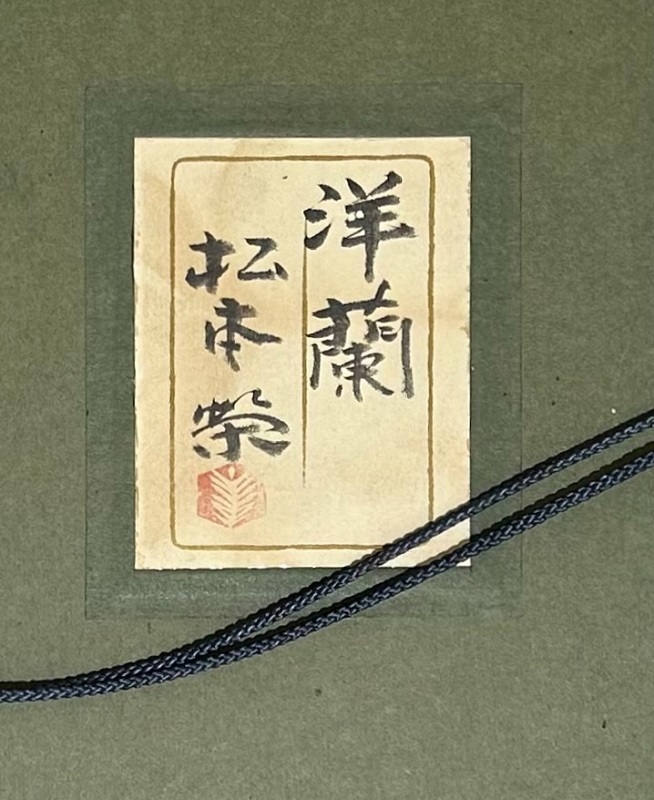 洋蘭
松本榮